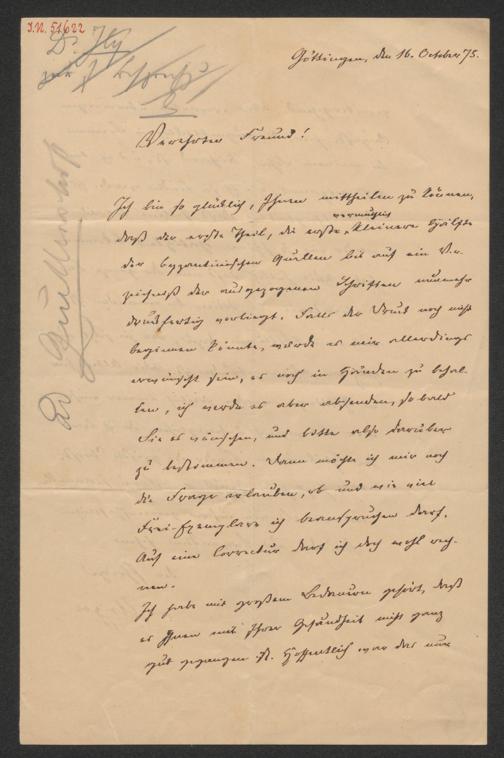 J.N. 51622
Dr. Ilg
zur
Göttingen, den 16. October 75.
Verehrter Freund!
Ich bin so glücklich, Ihnen mittheilen zu können,
daß der erste Theil, die erste, vermuthlich kleinere Hälfte
der byzantinischen Quellen bis auf ein Ver-
zeichniß der ausgezogenen Schriften nunmehr
druckfertig vorliegt. Falls der Druck noch nicht
beginnen könnte, würde es mir allerdings
erwünscht sein, es noch in Händen zu behal-
ten, ich werde es aber absenden, so bald
Sie es wünschen, und bitte also darüber
zu bestimmen. Dann möchte ich mir noch
die Frage erlauben, ob und wie viel
Frei-Exemplare ich beanspruchen darf.
Auf eine Correctur darf ich doch wohl rech-
nen.
Ich habe mit großem Bedauern gehört, daß
es Ihnen mit Ihrer Gesundheit nicht ganz
gut gegangen ist. Hoffentlich war das nur